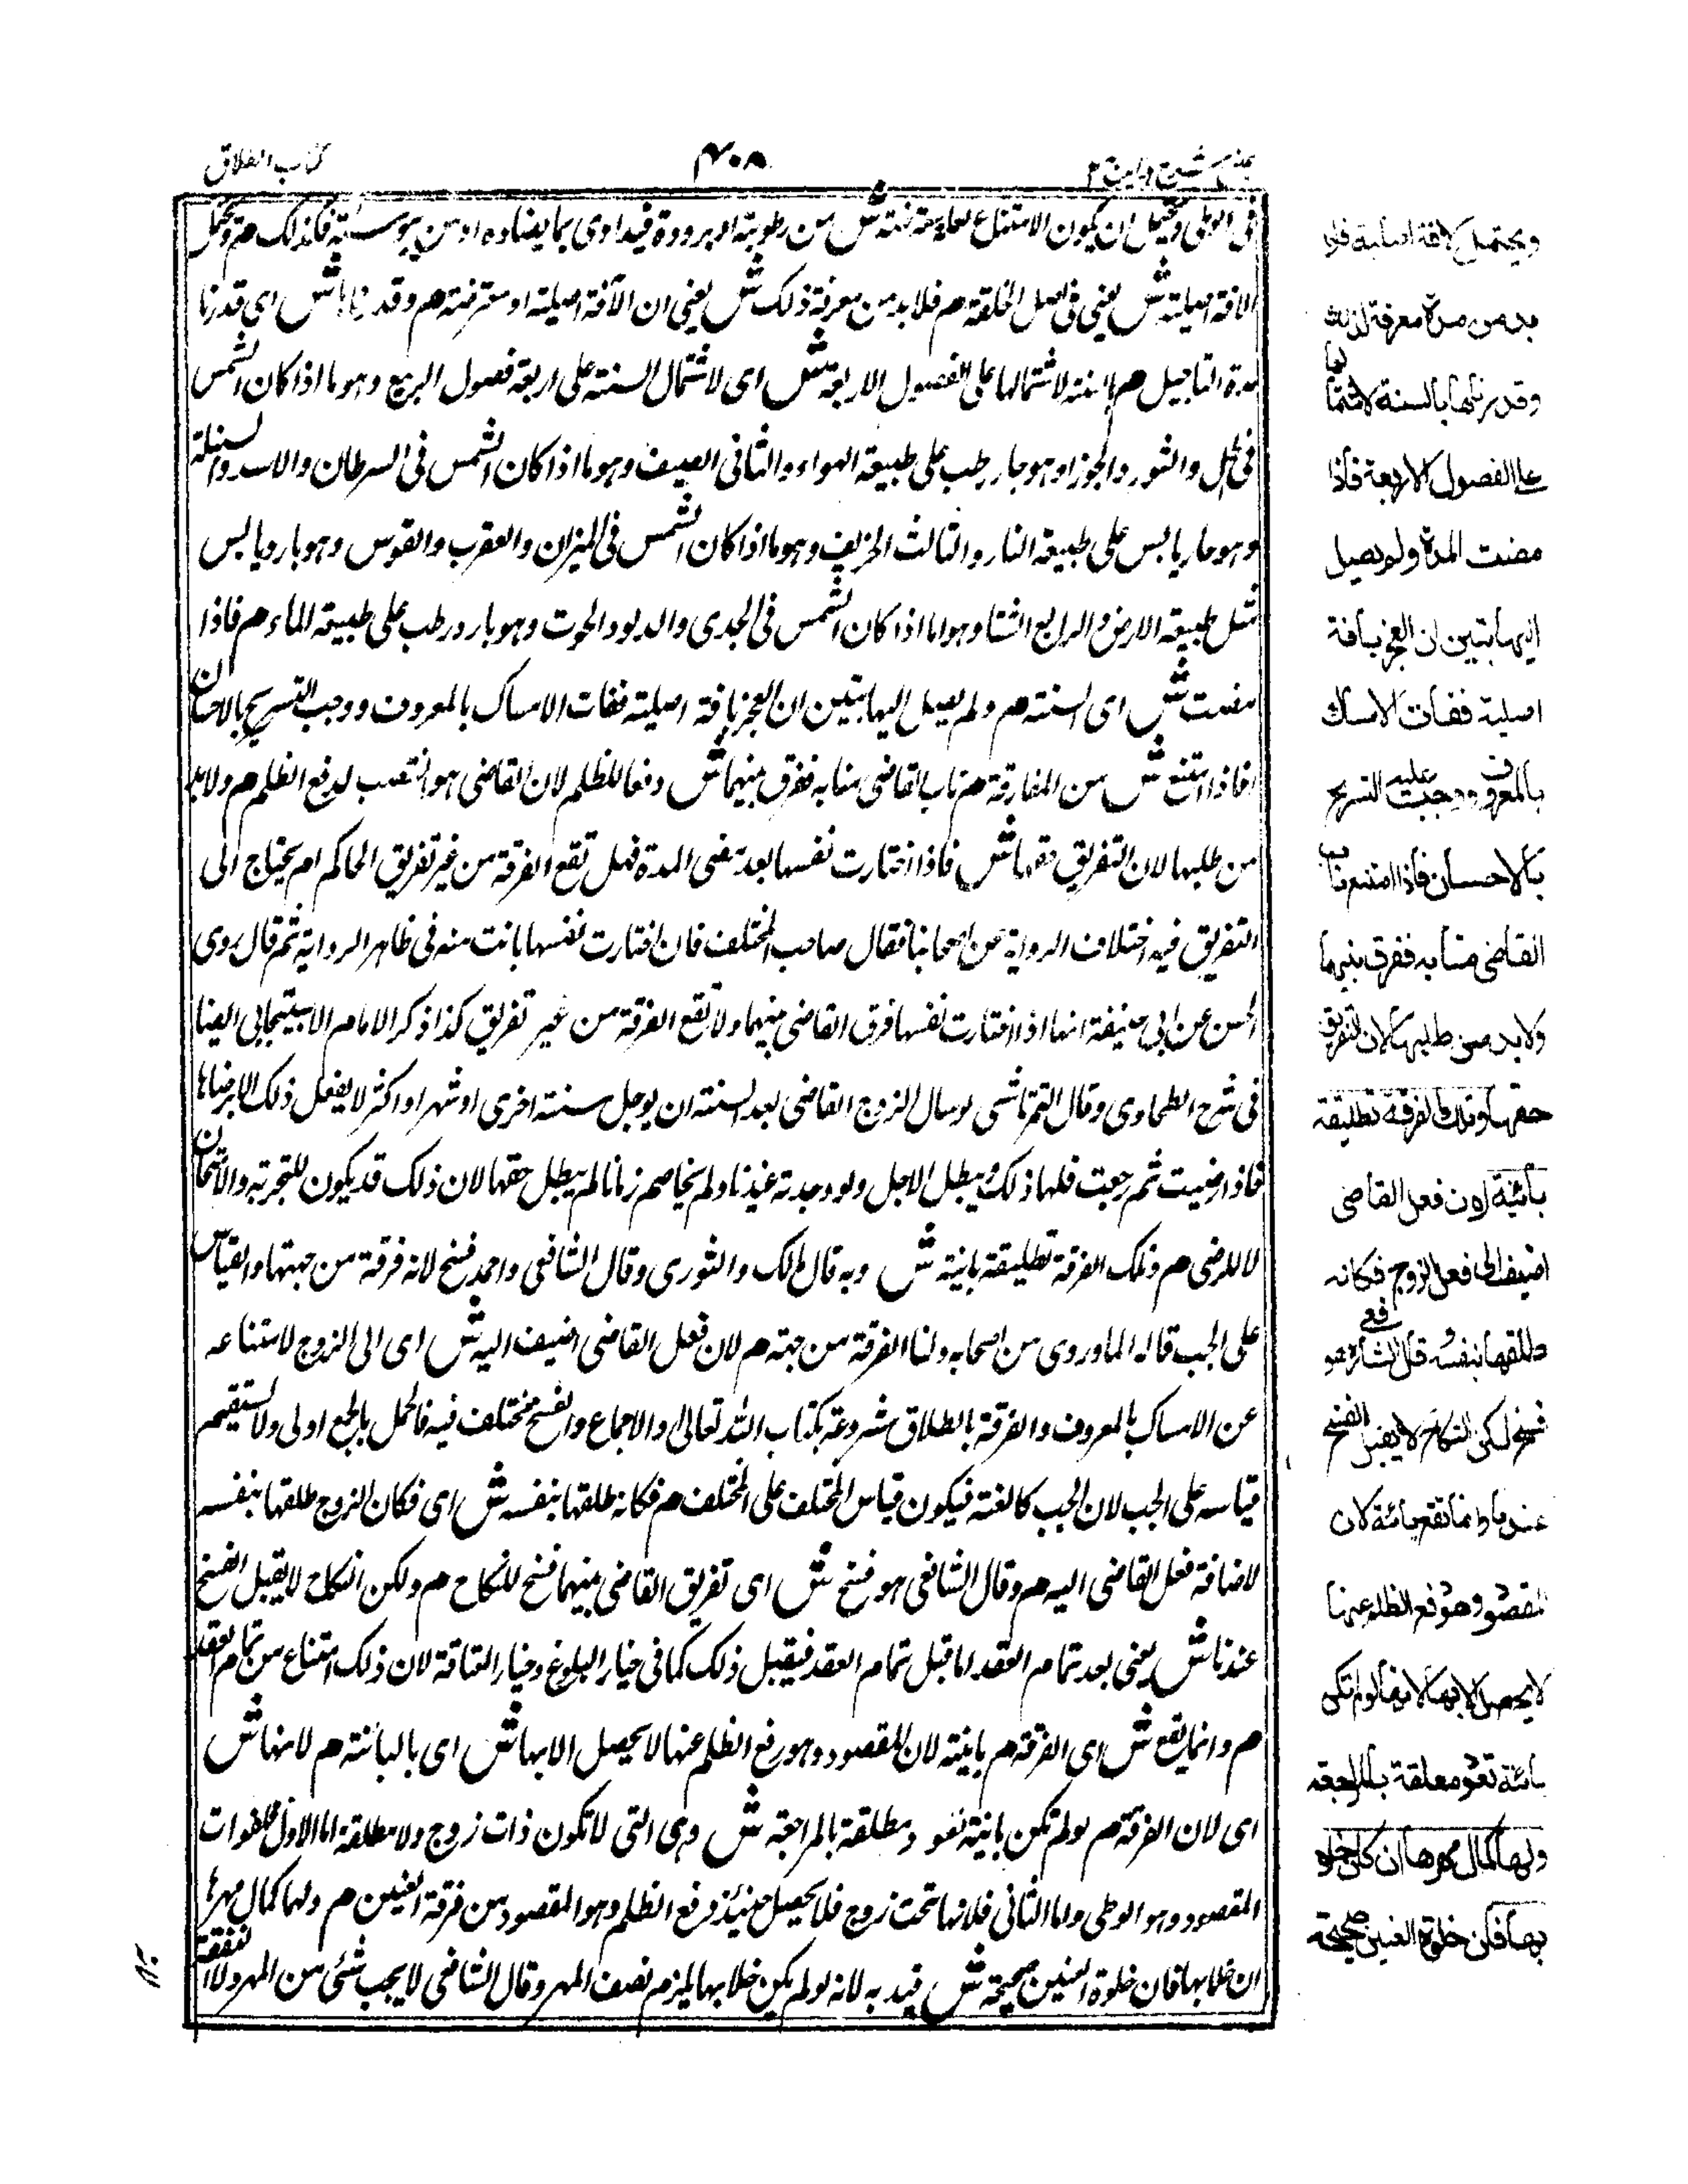 عيني شرح هداية ج ٢
٤٠٨
كتاب الطلاق
فى الوطى ويحتمل ان يكون الامتناع لعلة معترضة ش من رطوبة او برودة فيداوى بما يضاده او من يبوسة فكذلك م ويحتمل
لافة اصلية ش يعنى فى اصل الخلقة م فلا بد من معرفة ذلك ش يعنى ان الآفة اصلية او معترضة م وقدرناها ش اى قدرنا
مدة التاجيل م بالسنة لاشتمالها على الفصول الاربعة ش اى لاشتمال السنة على اربعة فصول الربيع وهو ما اذا كان الشمس
فى الحمل والثور والجوزا وهو حار رطب على طبيعة الهواء والثانى الصيف وهو ما اذا كان الشمس فى السرطان والاسد والسنبلة
وهو حار يابس على طبيعة النار والثالث الخريف وهو ما اذا كان الشمس فى الميزان والعقرب والقوس وهو بارد يابس
مثل طبيعة الارض والرابع الشتا وهو اما اذا كان الشمس فى الجدى والدلو والحوت وهو بارد رطب على طبيعة الماء م فاذا
مضت ش اى السنة م ولم يصل اليها تبين ان العجز بافة اصلية ففات الامساك بالمعروف ووجب التسريح بالاحسان
فاذا امتنع ش من المفارقة م ناب القاضى منابه ففرق بينهما ش دفعا للظلم لان القاضى هو انتصب لدفع الظلم م ولا بد
من طلبها لان التفريق حقها ش فاذا اختارت نفسها بعد مضى المدة فهل تقع الفرقة من غير تفريق الحاكم ام يحتاج الى
التفريق فيه اختلاف الرواية عن اصحابنا فقال صاحب المختلف فان اختارت نفسها بانت منه فى ظاهر الرواية ثم قال روى
الحسن عن ابى حنيفة انها اذا اختارت نفسها فرق القاضى بينهما ولا تقع الفرقة من غير تفريق كذا ذكر الامام الاسبيجابى ايضا
فى شرح الطحاوى وقال التمرتاشى لو سال الزوج القاضى بعد السنة ان يوجل سنة اخرى او شهرا او اكثر لا يفعل ذلك الا برضاها
فاذا رضيت ثم رجعت فلها ذلك ويبطل الاجل ولو وجدته عنينا ولم يخاصم زمانا لم يبطل حقها لان ذلك قد يكون للتجربة والامتحان
لا للرضى م وتلك الفرقة تطليقة باينة ش وبه قال مالك والثورى وقال الشافعى واحمد فسخ لانه فرقة من جهتها والقياس
على الجب قاله الماوردى من اصحابه ولنا الفرقة من جهته م لان فعل القاضى اضيف اليه ش اى الى الزوج لامتناعه
عن الامساك بالمعروف والفرقة بالطلاق مشروعة بكتاب الله تعالى والاجماع والفسخ مختلف فيه فالحمل بالجمع اولى ولا يستقيم
قياسه على الجب لان الجب كالعنة فيكون قياس المختلف على المختلف م فكانه طلقها بنفسه ش اى فكان الزوج طلقها بنفسه
لاضافة فعل القاضى اليه م وقال الشافعى هو فسخ ش اى تفريق القاضى بينهما فسخ للنكاح م ولكن النكاح لا يقبل الفسخ
عندنا ش يعنى بعد تمام العقد اما قبل تمام العقد فيقبل ذلك كما فى خيار البلوغ وخيار العتاقة لان ذلك امتناع من تمام العقد
م وانما يقع ش اى الفرقة م باينة لان المقصود وهو رفع الظلم عنها لا يحصل الا بها ش اى بالبائنة م لانها ش
اى لان الفرقة م لو لم تكن باينة تعود مطلقة بالمراجعة ش وهى التى لا تكون ذات زوج ولا مطلقة اما الاول فلفوات
المقصود وهو الوطى واما الثانى فلانها تحت زوج فلا يحصل حينئذ دفع الظلم وهو المقصود من فرقة العنين م ولها كمال مهرها
ان خلا بها فان خلوة العنين صحيحة ش قيد به لانه لو لم يكن خلا بها يلزم نصف المهر وقال الشافعى لا يجب شئ من المهر ولا النفقة
ويحتمل لافة اصلية فلا
بد من مدة معرفة لذلك
وقدرناها بالسنة لاشتمالها
على الفصول الاربعة فاذا
مضت المدة ولم يصل
اليها تبين ان العجز بافة
اصلية ففات الامساك
بالمعروف ووجبت عليه التسريح
بالاحسان فاذا امتنع ناب
القاضى منابه ففرق بينهما
ولا بد من طلبها لان التفريق
حقها وتلك الفرقة تطليقة
بائنة لان فعل القاضى
اضيف الى فعل الزوج فكانه
طلقها بنفسه قال الشافعى هو
فسخ لكن النكاح لا يقبل الفسخ
عندنا وانما تقع بائنة لان
المقصود وهو دفع الظلم عنها
لا يحصل الا بها لانها لو لم تكن
بائنة تعود معلقة بالمراجعة
ولها كمال مهرها ان كان خلا
بها فان خلوة العنين صحيحة